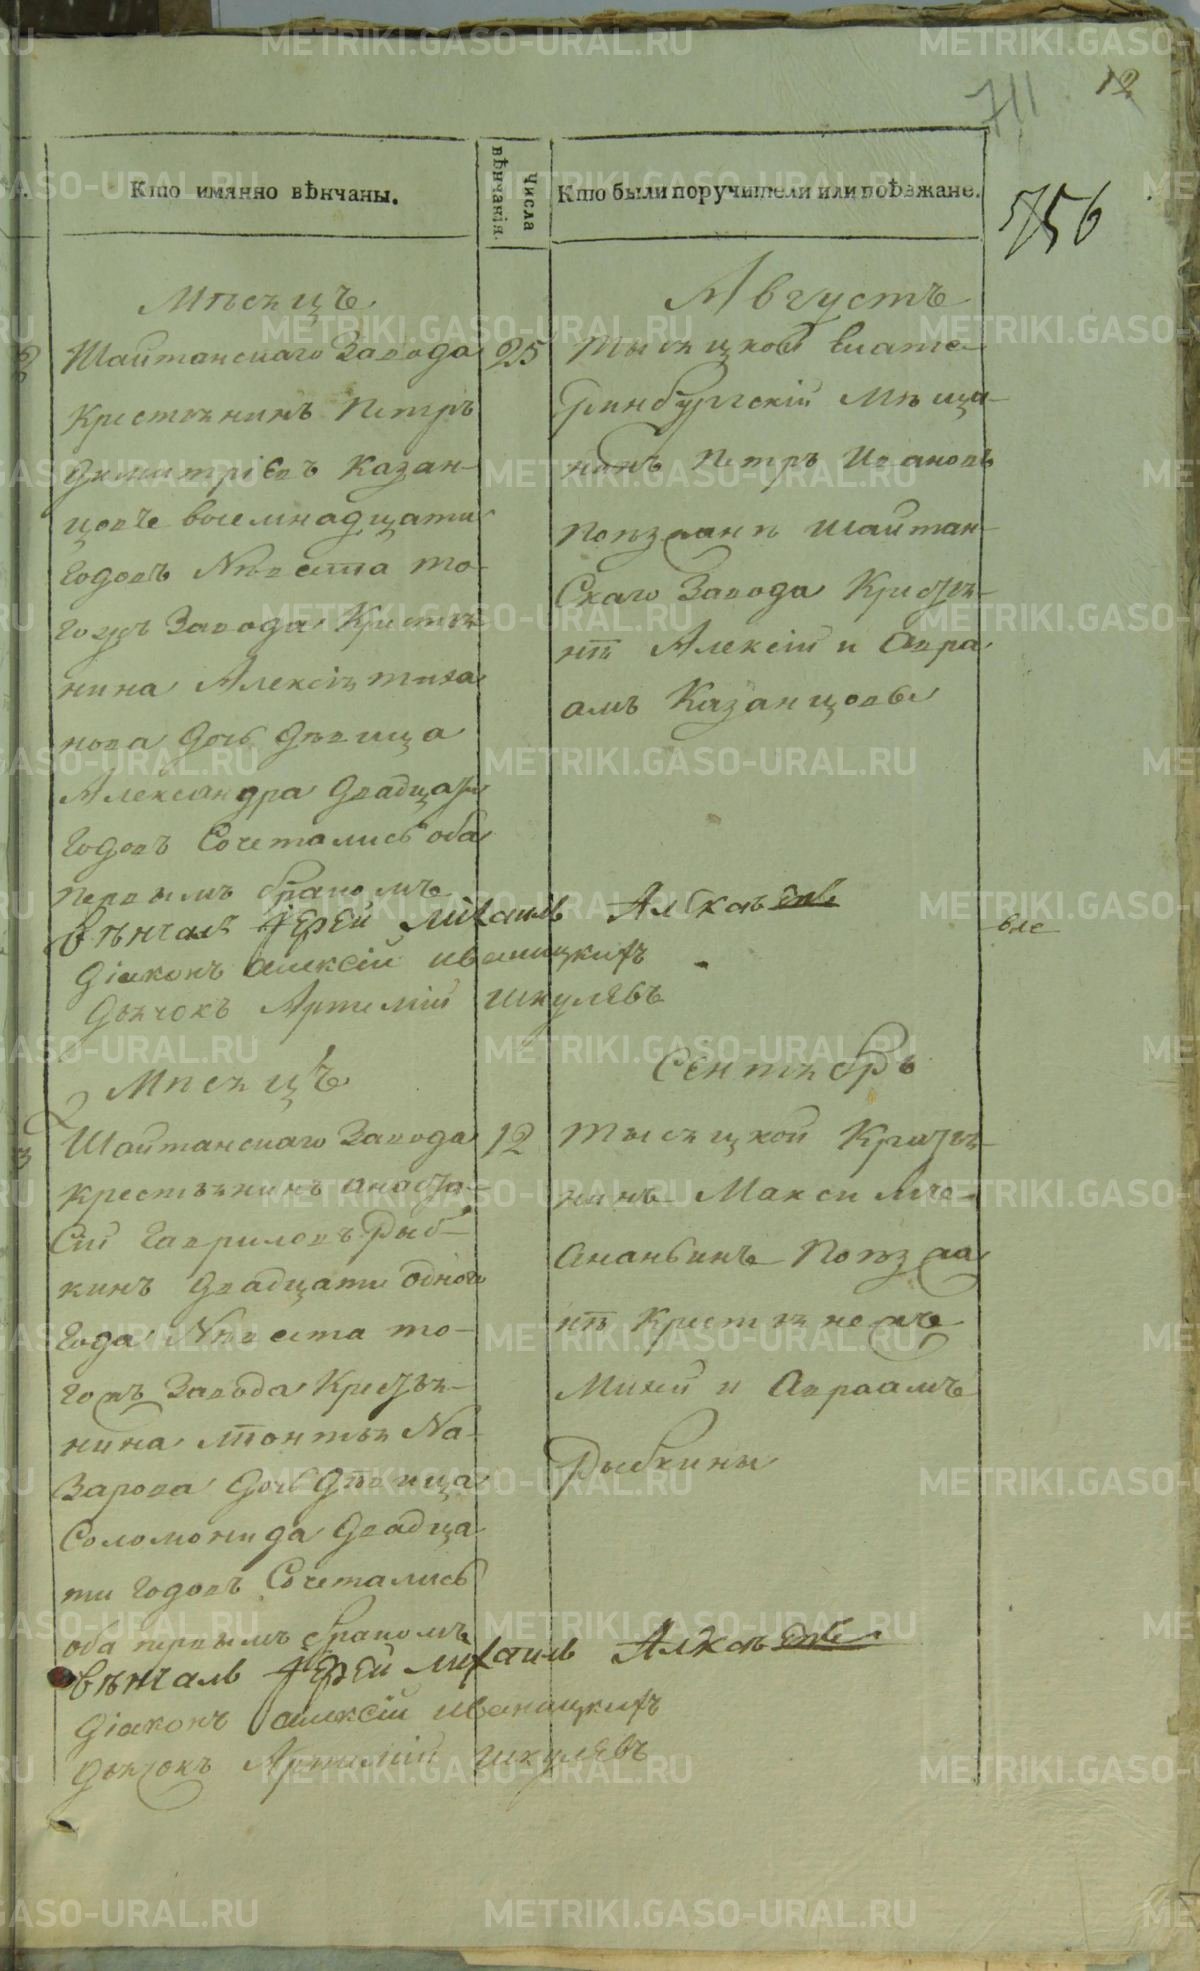 12
711
756
Кто имянно вѣнчаны.
Числа вѣнчанія.
Кто были поручители или поѣзжане.
Мѣсяцъ
Августъ
2
Шайтанскаго Завода
Крестьянинъ Петръ
Димитріевъ Казан-
цовъ восемнадцати
Годовъ Невеста то-
гожъ Завода Крестья
нина Алексія Тиха
нова дочь девица
Александра двадцати
Годовъ Сочетались оба
первымъ бракомъ
25
Тысяцкой Екате-
ринбургскій Меща-
нинъ Петръ Ивановъ
Поезжанѣ Шайтан-
Скаго Завода Крестья-
нѣ Алексій и Авра
амъ Казанцовы
Вѣнчалъ Іерей Михаилъ Алексѣевъ
Діаконъ Алексій Иваницкихъ
Дьячокъ Артемій Шкулявъ
Мѣсяцъ
Сентябрь
3
Шайтанскаго Завода
Крестьянинъ Анаста-
Сій Гавриловъ Рыб-
кинъ двадцати одного
Года Невеста то-
гожъ Завода Крестья-
нина На-
зарова дочь девица
Соломонида двадца
ти Годовъ Сочетались
оба первымъ бракомъ
12
Тысяцкой Крестья-
нинъ Максимъ
Ананьинъ Поезжа
нѣ Крестьянемъ
Михей и Авраамъ
Рыбкины
Вѣнчалъ Іерей Михаилъ Алексѣевъ
Діаконъ Алексій Иваницкихъ
Дьячокъ Артемій Шкулявъ
METRIKI.GASO-URAL.RU